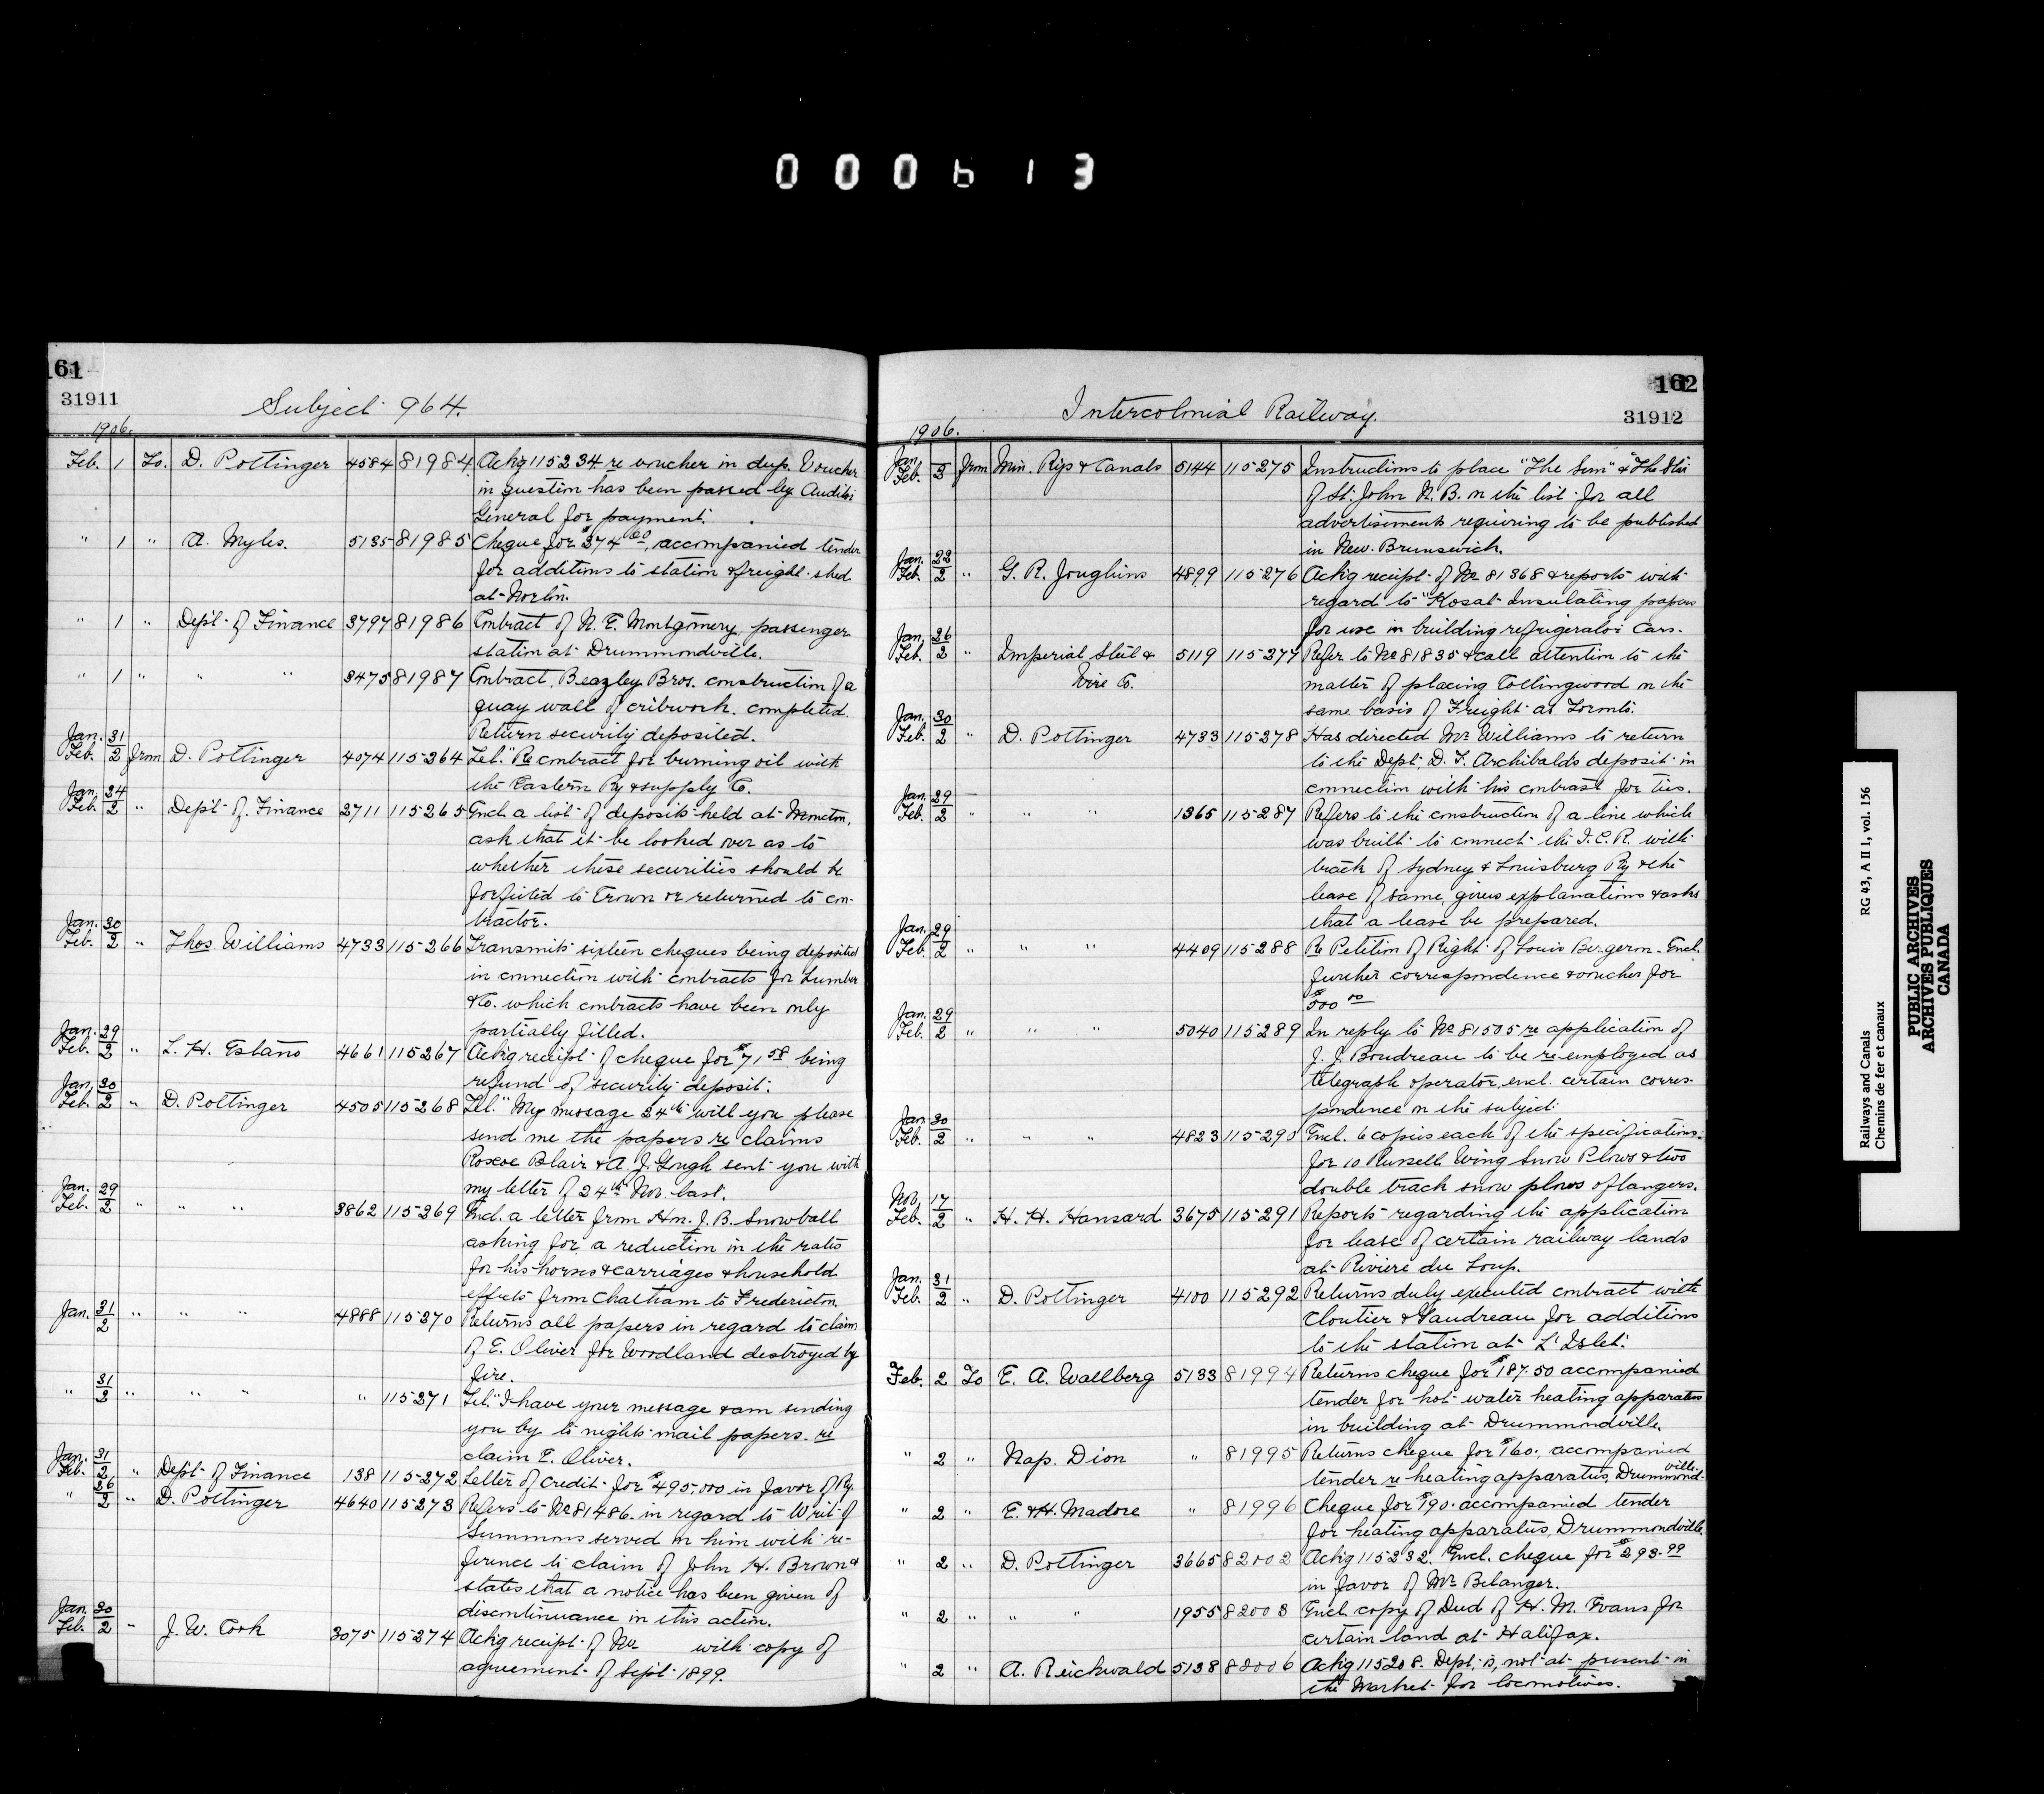 000613
161
31911
Subject 964.
1906.
Feb. 1 To. D. Pottinger 4584 81984 Ackg 115234 re voucher in dup. Voucher
in question has been passed by Auditor
General for payment.
" 1 " A. Myles. 5135 81985 Cheque for $374.00, accompanied tender
for additions to station & freight shed
at Norton.
" 1 " Dept of Finance 3797 81986 Contract of N. E. Montgomery, passenger
station at Drummondville.
" 1 " " " 3475 81987 Contract, Beazley Bros. construction of a
quay wall of cribwork. completed.
Return security deposited.
Jan. 31
Feb. 2 from D. Pottinger 4074 115264 Tel. "Re contract for burning oil with
the Eastern Ry & supply Co.
Jan. 24
Feb. 2 " Dept of Finance 2711 115265 Encl. a list of deposits held at Moncton,
ask that it be looked over as to
whether these securities should be
forfeited to Crown or returned to con-
tractor.
Jan. 30
Feb. 2 " Thos. Williams 4733 115266 Transmits sixteen cheques being deposited
in connection with contracts for Lumber
&Co. which contracts have been only
partially filled.
Jan. 29
Feb. 2 " L. H. Estano 4661 115267 Ackg receipt of cheque for $71.58 being
refund of security deposit.
Jan. 30
Feb. 2 " D. Pottinger 4505 115268 Tel. "My message 24th will you please
send me the papers re claims
Roscoe Blair & A. J. Gough sent you with
my letter of 24th Nov. last.
Jan. 29
Feb. 2 " " " 3862 115269 Encl. a letter from Hon. J. B. Snowball
asking for a reduction in the rates
for his horses & carriages & household
effects from Chatham to Fredericton.
Jan. 31
2 " " " 4888 115270 Returns all papers in regard to claim
of E. Oliver for Woodland destroyed by
fire.
" 31
2 " " " " 115271 Tel. "I have your message & am sending
you by to nights mail papers re
claim E. Oliver.
Jan. 31
Feb. 2 " Dept of Finance 138 115272 Letter of Credit for $495,000 in favor of Ry.
" 26
2 " D. Pottinger 4640 115273 Refers to No 81486. in regard to Writ of
Summons served on him with re-
ference to claim of John H. Brown &
states that a notice has been given of
discontinuance in this action.
Jan. 30
Feb. 2 " J. W. Cook 3075 115274 Ackg receipt of No with copy of
agreement of Sept 1899.
162
Intercolonial Railway.
31912
1906.
Jan.
Feb. 2 from Min. Rys & Canals 5144 115275 Instructions to place "The Sun" & "The Star
of St. John N. B. on the list for all
advertisements requiring to be published
in New Brunswick.
Jan. 22
Feb. 2 " G. R. Joughins 4899 115276 Ackg receipt of No 81368 & reports with
regard to "Kosat Insulating papers
for use in building refrigerator Cars.
Jan. 26
Feb. 2 " Imperial Steel &
Wire Co. 5119 115277 Refer to No 81835 & call attention to the
matter of placing Collingwood on the
same basis of Freight as Toronto.
Jan. 30
Feb. 2 " D. Pottinger 4733 115278 Has directed Mr Williams to return
to the Dept. D. F. Archibalds deposit in
connection with his contrast for Ties.
Jan. 29
Feb. 2 " " " 1365 115287 Refers to the construction of a line which
was built to connect the I. C. R. with
track of Sydney & Louisburg Ry & the
lease of same, gives explanations & asks
that a lease be prepared.
Jan. 29
Feb. 2 " " " 4409 115288 Re Petition of Right of Louis Bergeron. Encl.
further correspondence & voucher for
$500.00
Jan. 29
Feb. 2 " " " 5040 115289 In reply to No 81505 re application of
J. J. Boudreau to be re-employed as
telegraph operator, encl. certain corres-
pondence on the subject.
Jan. 30
Feb. 2 " " " 4823 115290 Encl. 6 copies each of the specifications
for 10 Russell Wing Snow Plows & two
double track snow plows & flangers.
Nov. 17
Feb. 2 " H. H. Hansard 3675 115291 Reports regarding the application
for lease of certain railway lands
at Riviere du Loup.
Jan. 31
Feb. 2 " D. Pottinger 4100 115292 Returns duly executed contract with
Cloutier & Gaudreau for additions
to the station at L'Islet.
Feb. 2 To E. A. Wallberg 5133 81994 Returns cheque for $187.50 accompanied
tender for hot water heating apparatus
in building at Drummondville.
" 2 " Nap. Dion " 81995 Returns cheque for $160., accompanied
tender re heating apparatus, Drummondville.
" 2 " E. & H. Madore " 81996 Cheque for $190. accompanied tender
for heating apparatus, Drummondville.
" 2 " D. Pottinger 3665 82002 Ackg 115232. Encl. cheque for $293.99
in favor of Mr Belanger.
" 2 " " " 1955 82003 Encl. copy of Deed of H. M. Evans for
certain land at Halifax.
" 2 " A. Reichwald 5138 82006 Ackg 115208. Dept. is, not at present in
the Market for locomotives.
Railways and Canals RG 43, A II 1, vol. 156
Chemins de fer et canaux
PUBLIC ARCHIVES
ARCHIVES PUBLIQUES
CANADA